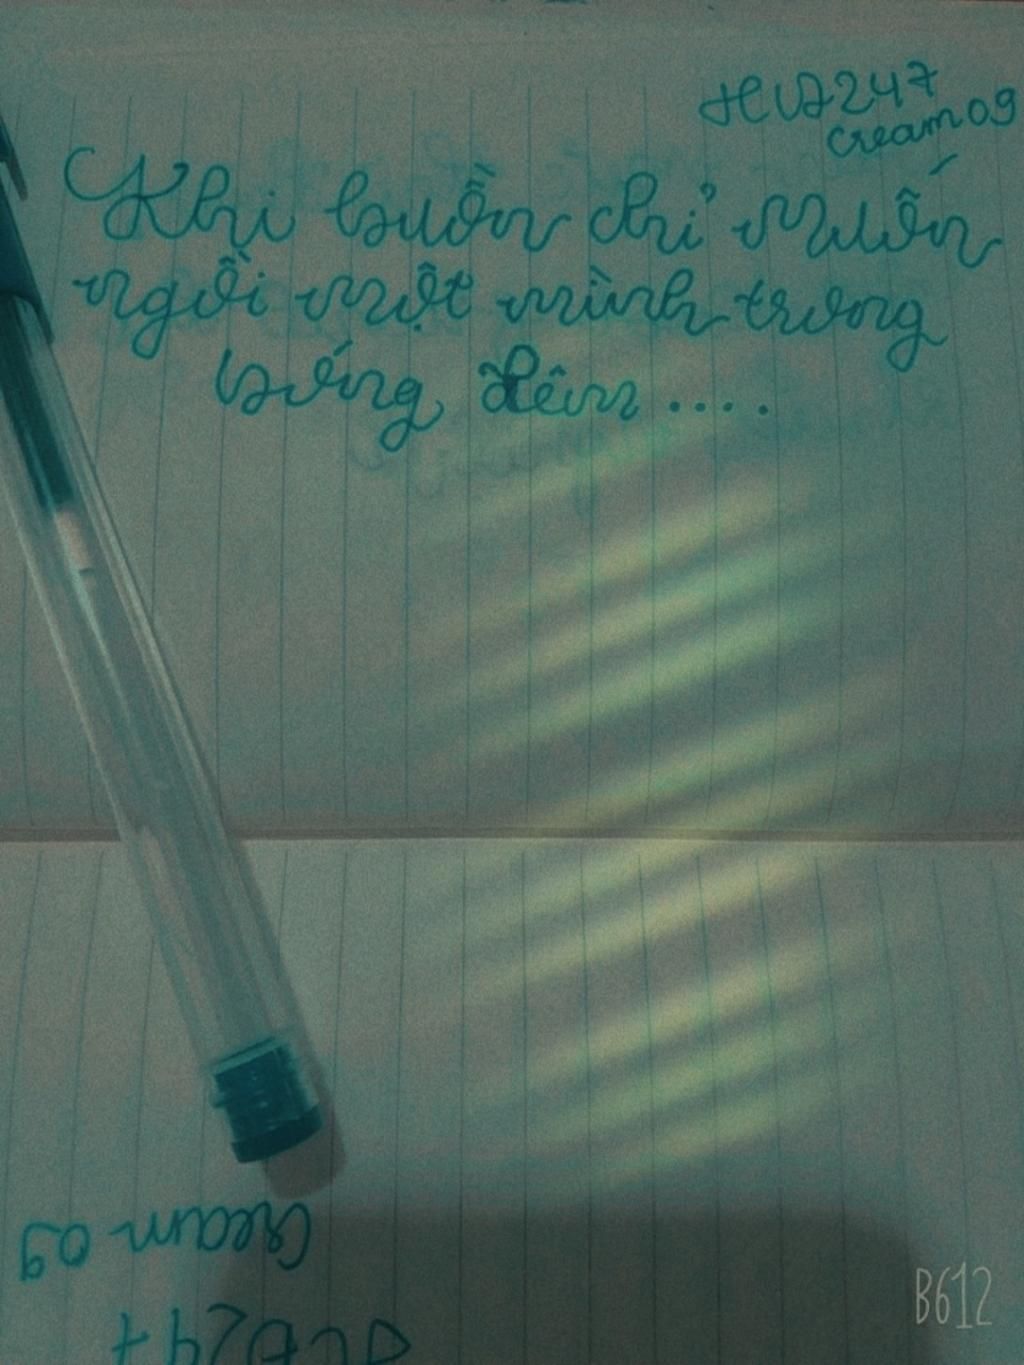 HCD247
cream 09
Khi buồn chỉ muốn
ngồi một mình trong
bóng đêm ....
Cream 09
HCD247
B612